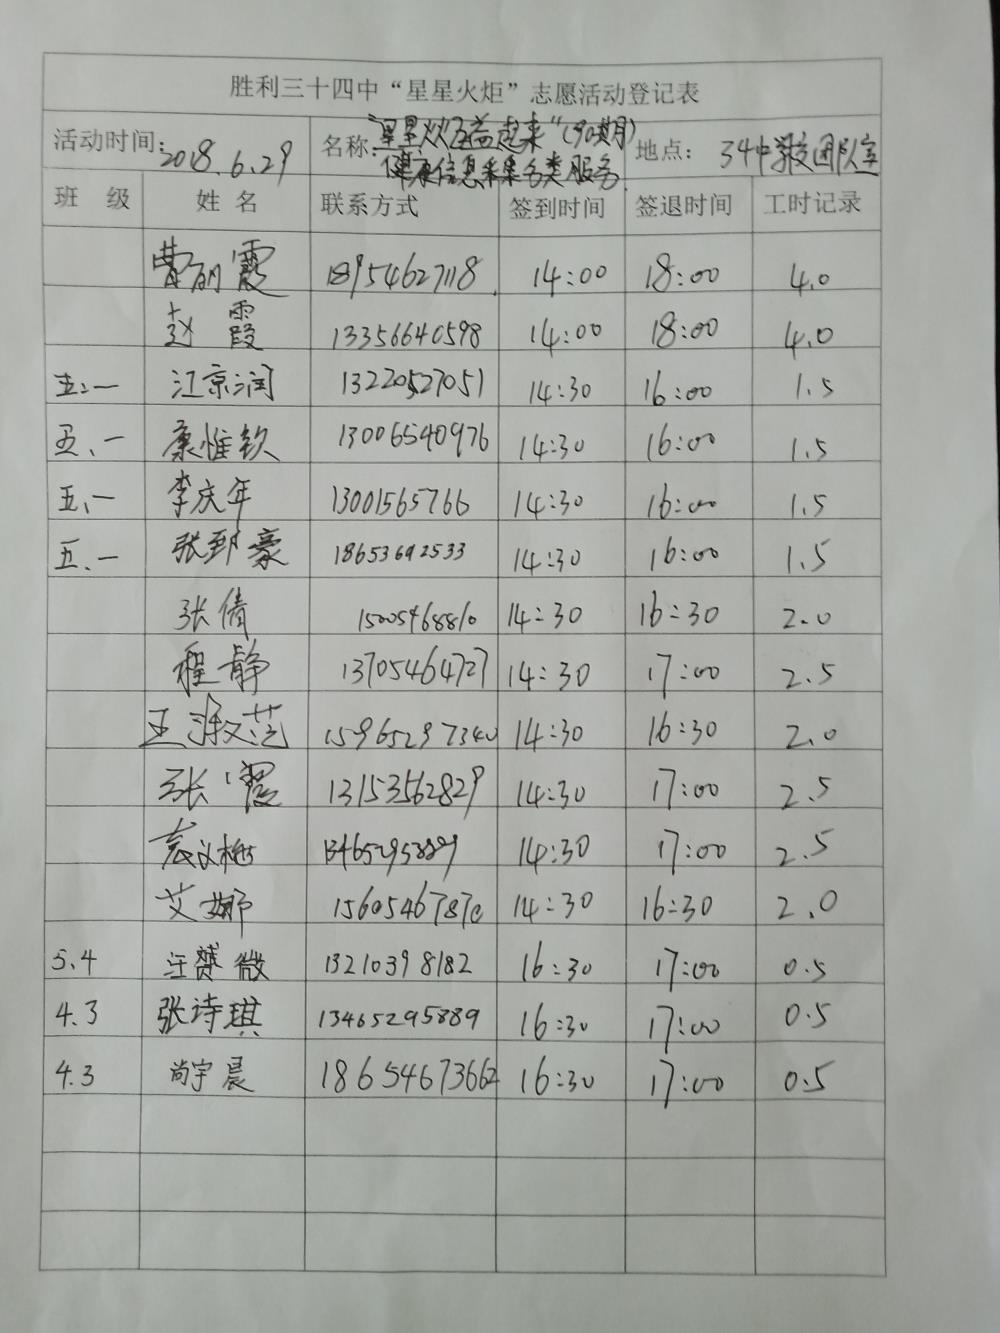 胜利三十四中“星星火炬”志愿活动登记表
活动时间:2018.6.29 名称: “星星火炬益起来”(90期) 地点: 34中学校团队室
健康信息采集各类服务
班 级 姓 名 联系方式 签到时间 签退时间 工时记录
曹丽霞 18954627118 14:00 18:00 4.0
赵霞 13356640598 14:00 18:00 4.0
五.一 江京润 13220527051 14:30 16:00 1.5
五.一 康惟钦 13006540976 14:30 16:00 1.5
五.一 李庆年 13001565766 14:30 16:00 1.5
五.一 张郅豪 18653692533 14:30 16:00 1.5
张倩 15005468810 14:30 16:30 2.0
程静 13705464727 14:30 17:00 2.5
王淑范 15965297340 14:30 16:30 2.0
张霞 13153562829 14:30 17:00 2.5
袁议梅 13465295889 14:30 17:00 2.5
艾娜 15605467870 14:30 16:30 2.0
5.4 汪赟微 13210398182 16:30 17:00 0.5
4.3 张诗琪 13465295889 16:30 17:00 0.5
4.3 尚宇晨 18654673662 16:30 17:00 0.5